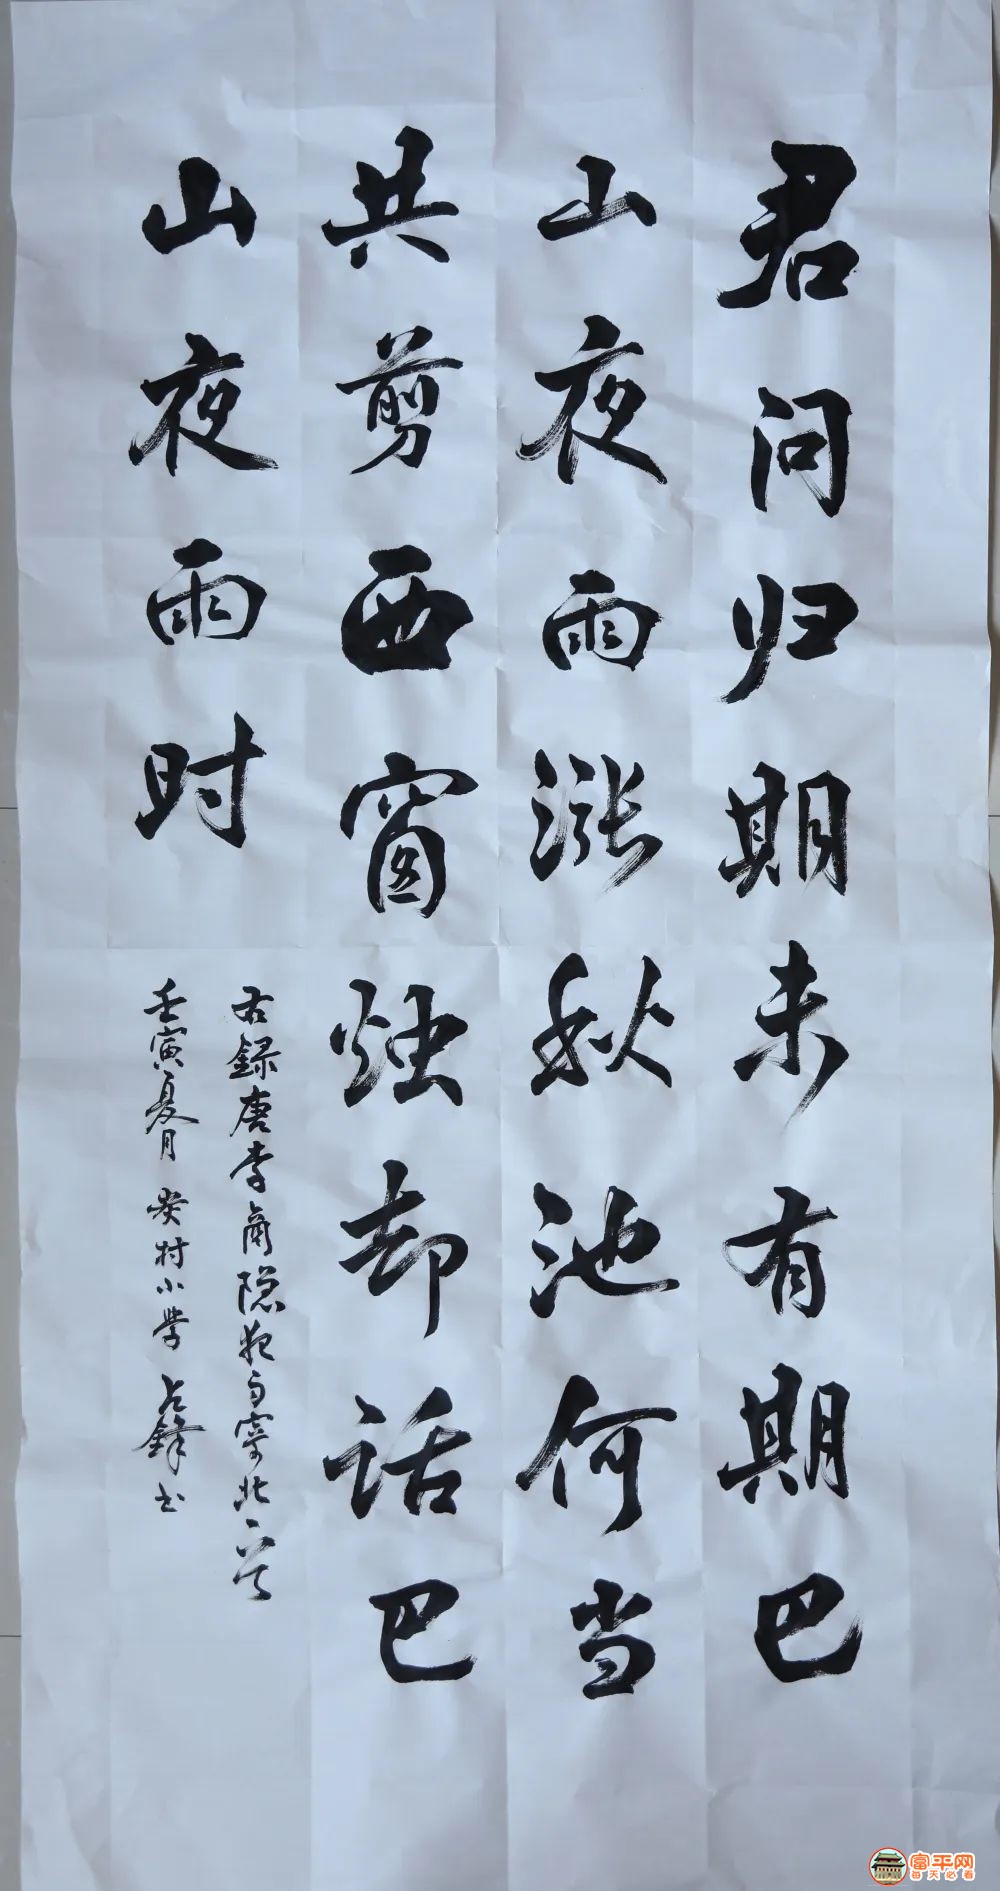 君问归期未有期巴
山夜雨涨秋池何当
共剪西窗烛却话巴
山夜雨时
右録唐李商隐夜雨寄北一首
壬寅夏月 癸村小学 占锋书
富平网
每天必看